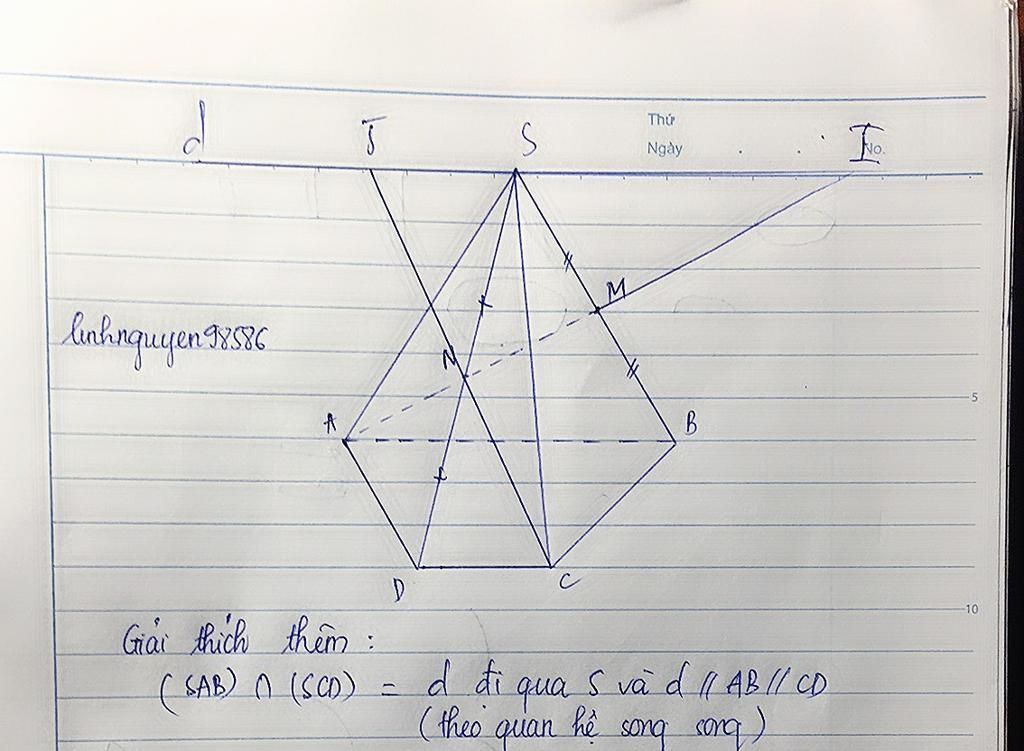 Thứ
Ngày . . .
No.
d J S I
M
linhnguyen98586
N
5
A B
D C
10
Giải thích thêm :
(SAB) ∩ (SCD) = d đi qua S và d // AB // CD
(theo quan hệ song song)